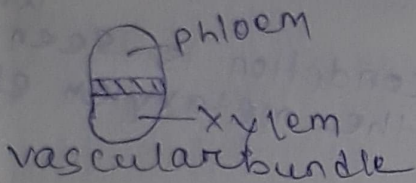 phloem
xylem
vascularbundle